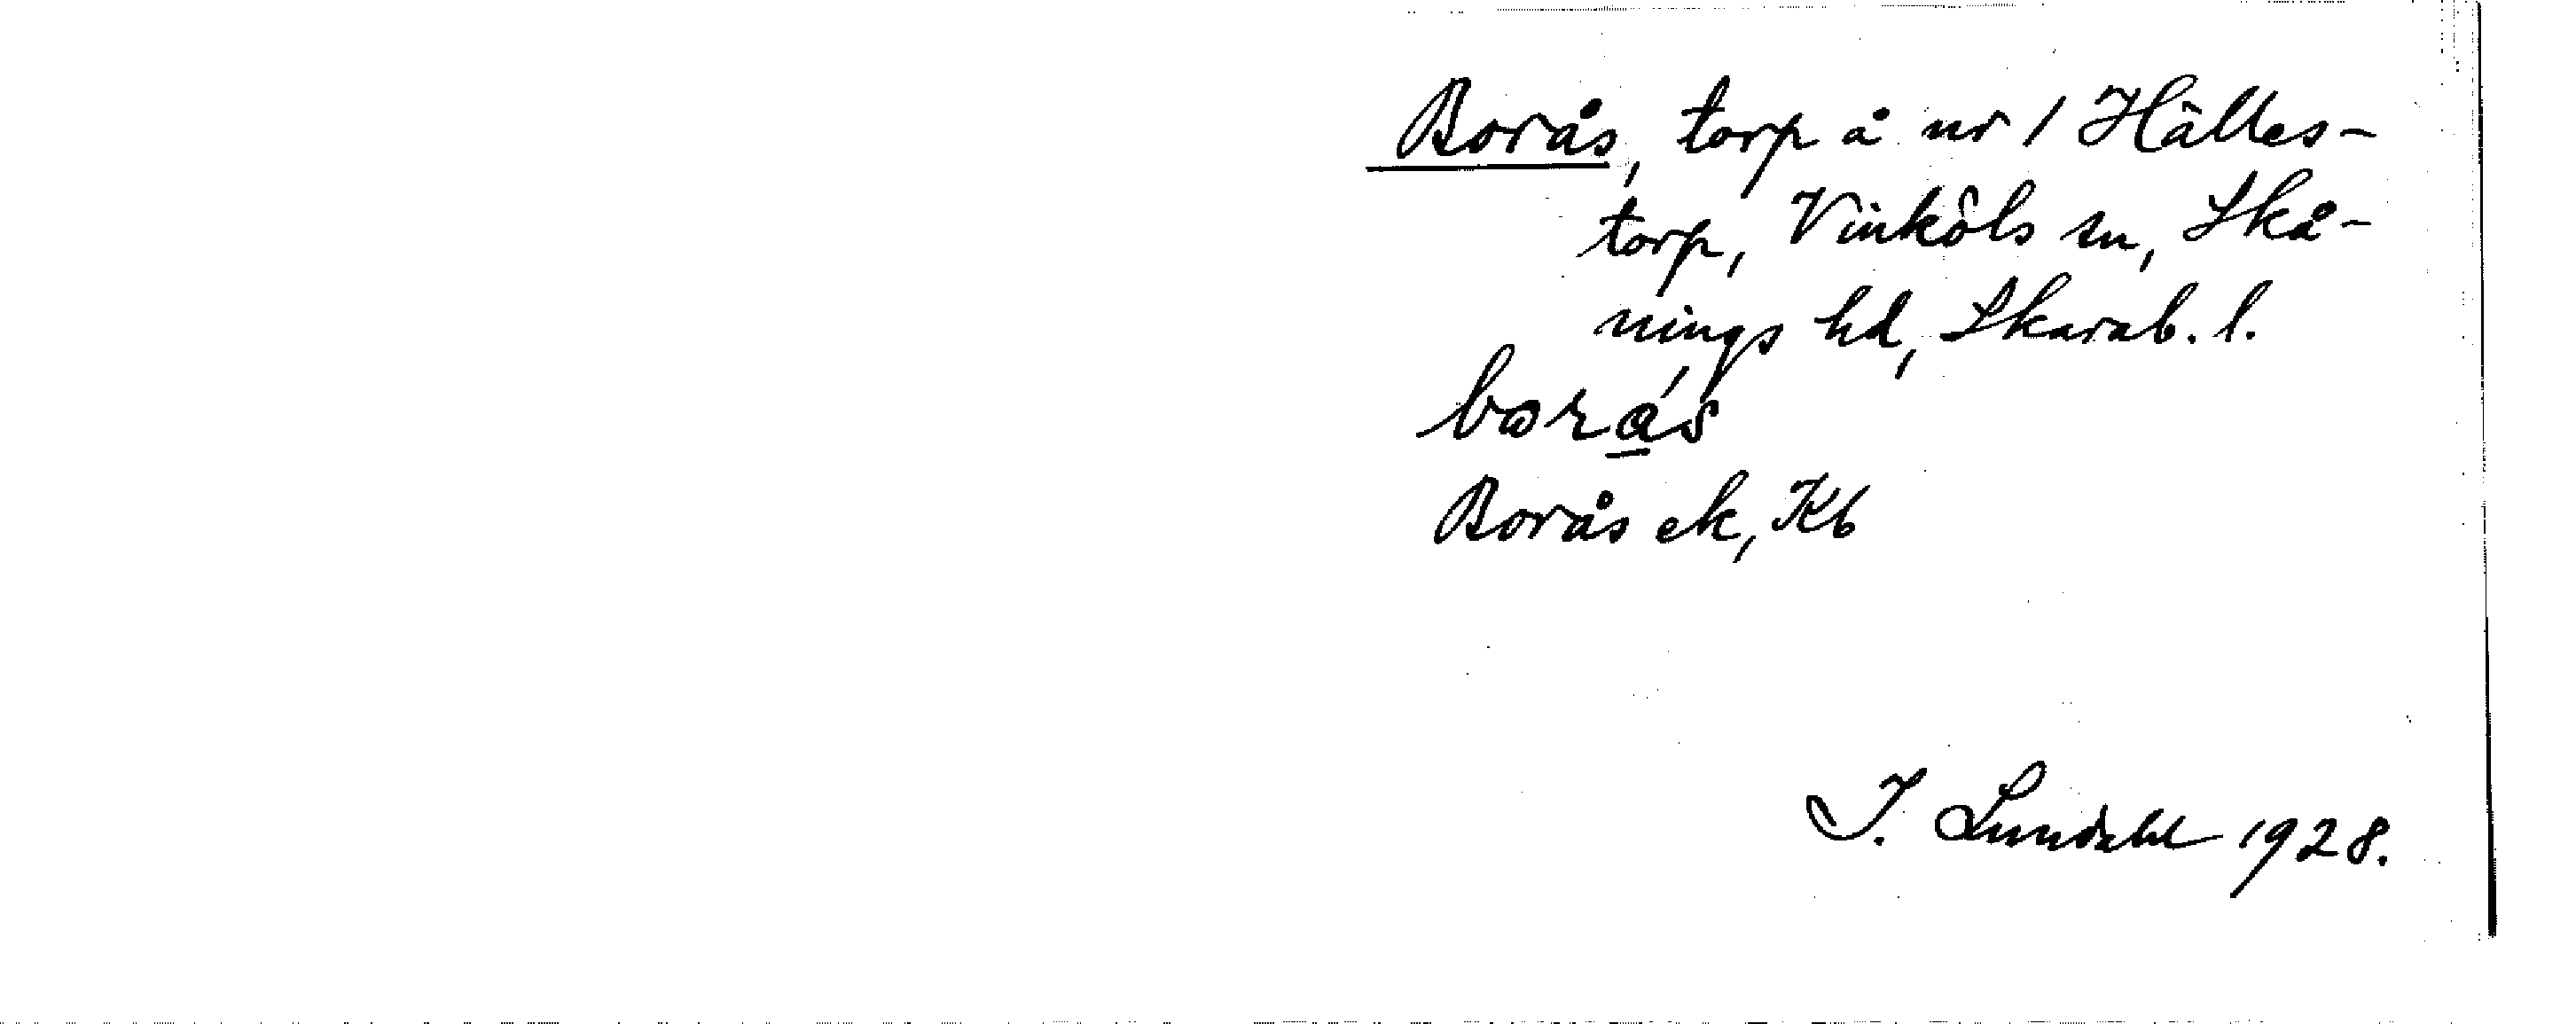 Borås, torp å nr 1 Hälles-
torp, Vinköls sn, Skå-
nings hd, Skarab. l.
Borås ek, Kb
I. Lundahl 1928.